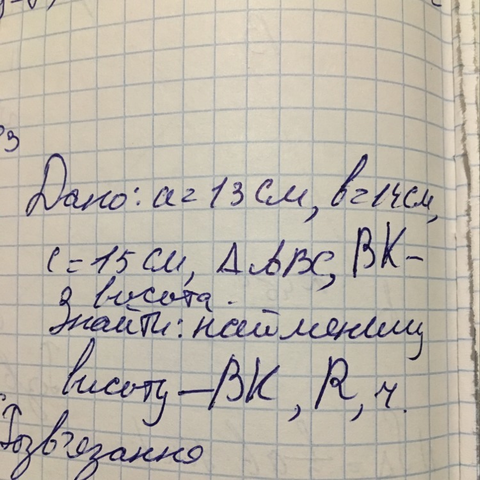 Дано: a = 13 см, b = 14 см,
c = 15 см, ΔABC, BK –
висота.
Знайти: найменшу
висоту – BK, R, r.
Розв'язання